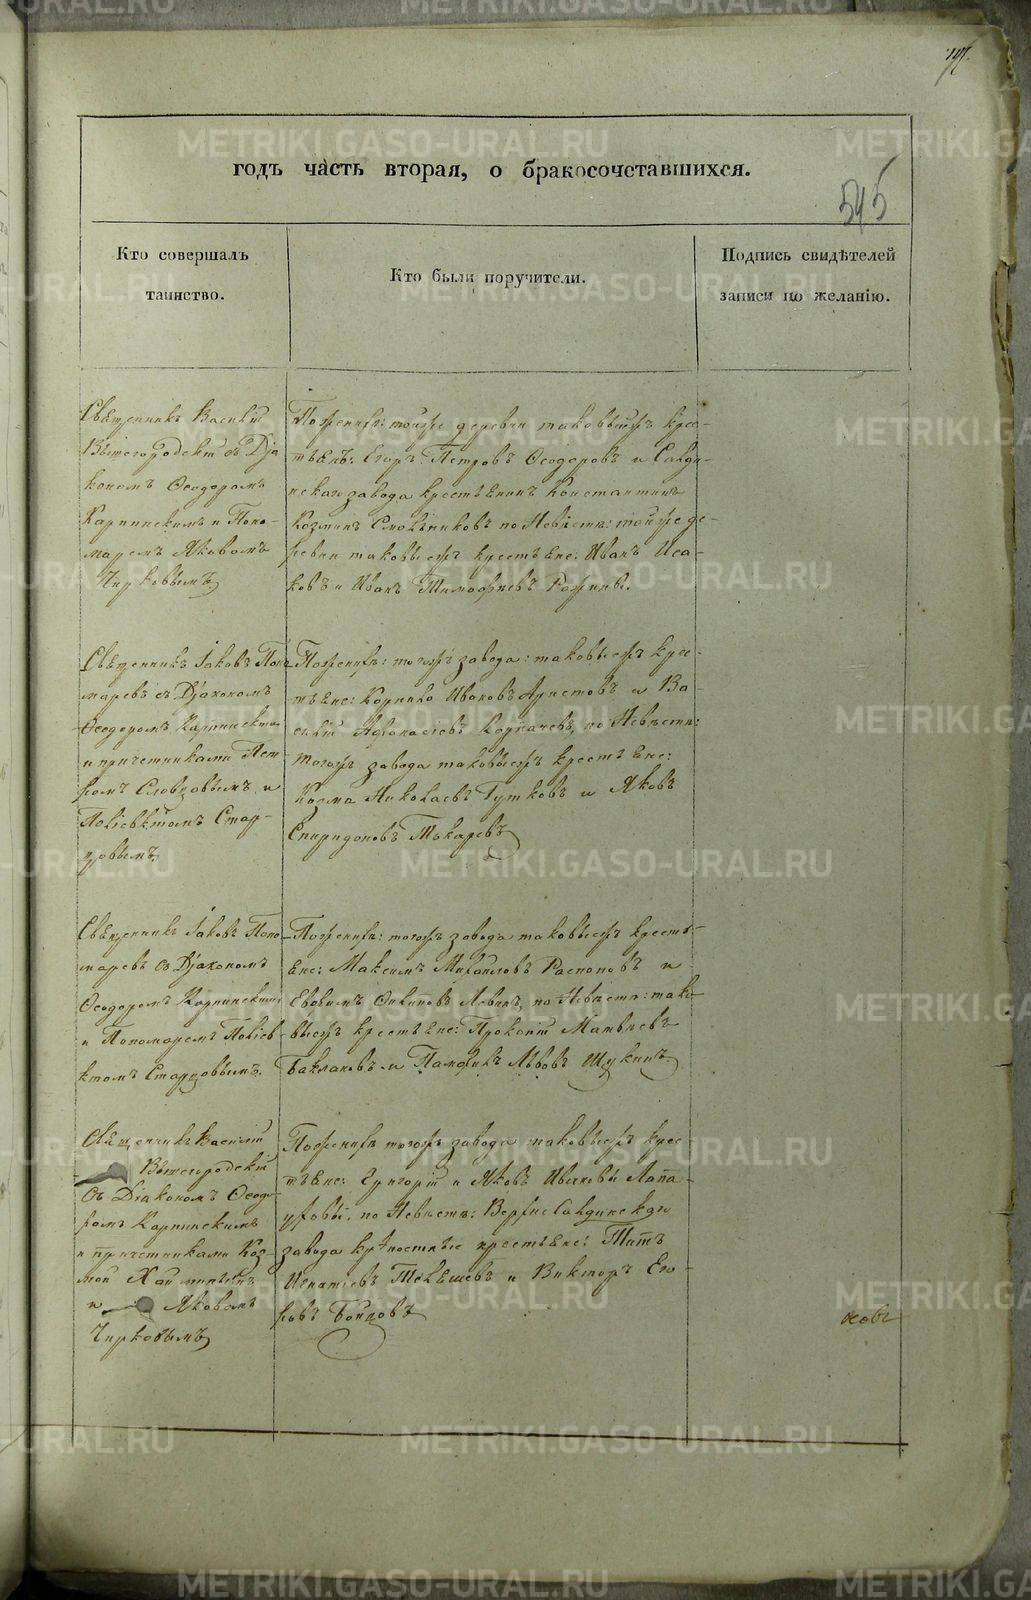 545
годъ часть вторая, о бракосочетавшихся.
Кто совершалъ
таинство.
Кто были поручители.
Подпись свидѣтелей
записи по желанію.
Священникъ Василій
Вышегородскій съ Діа
кономъ Ѳеодоромъ
Карпинскимъ и Поно-
маремъ Яковомъ
Чирковымъ
По женихѣ: тойже деревни таковыежъ крес-
тьяне: Егоръ Петровъ Ѳеодоровъ и Салди-
нскаго завода крестьянинъ Константинъ
Козминъ по Невѣстѣ: тойже де-
ревни таковыежъ крестьяне: Иванъ Иса-
ковъ и Иванъ Тимофѣевъ
Священникъ Іаковъ Поно
маревъ съ Діакономъ
Ѳеодоромъ Карпинскимъ
и причетниками Пет
ромъ Словцовымъ и
Поліевктомъ Стар-
цовымъ
По женихѣ: тогожъ завода: таковыежъ крес-
тьяне: Корнило Ивановъ Аристовъ и Ва-
силій Афанасіевъ по Невѣстѣ:
тогожъ завода таковыежъ крестьяне:
Козма Николаевъ Гутковъ и Яковъ
Спиридоновъ Токаревъ
Священникъ Іаковъ Поно
маревъ съ Діакономъ
Ѳеодоромъ Карпинскимъ
и Пономаремъ Поліев
ктомъ Старцовымъ.
По женихѣ: тогожъ завода таковыежъ кресть-
яне: Максимъ Михайловъ Распоповъ и
Евѳимъ по Невѣстѣ: тако
выежъ крестьяне: Прокопій Матвѣевъ
Баклановъ и Памфилъ Львовъ Щукинъ
Священникъ Василій
Вышегородскій
съ Діакономъ Ѳеодо-
ромъ Карпинскимъ
и причетниками Коз-
мой
и Яковомъ
Чирковымъ
По женихѣ тогожъ завода таковыежъ крес
тьяне: Григорій и Яковъ Ивановы Лапа-
уховы. по Невѣстѣ: Верхнесалдинскаго
завода крѣпостные крестьяне: Титъ
Игнатіевъ и Викторъ Его-
ровъ
METRIKI.GASO-URAL.RU